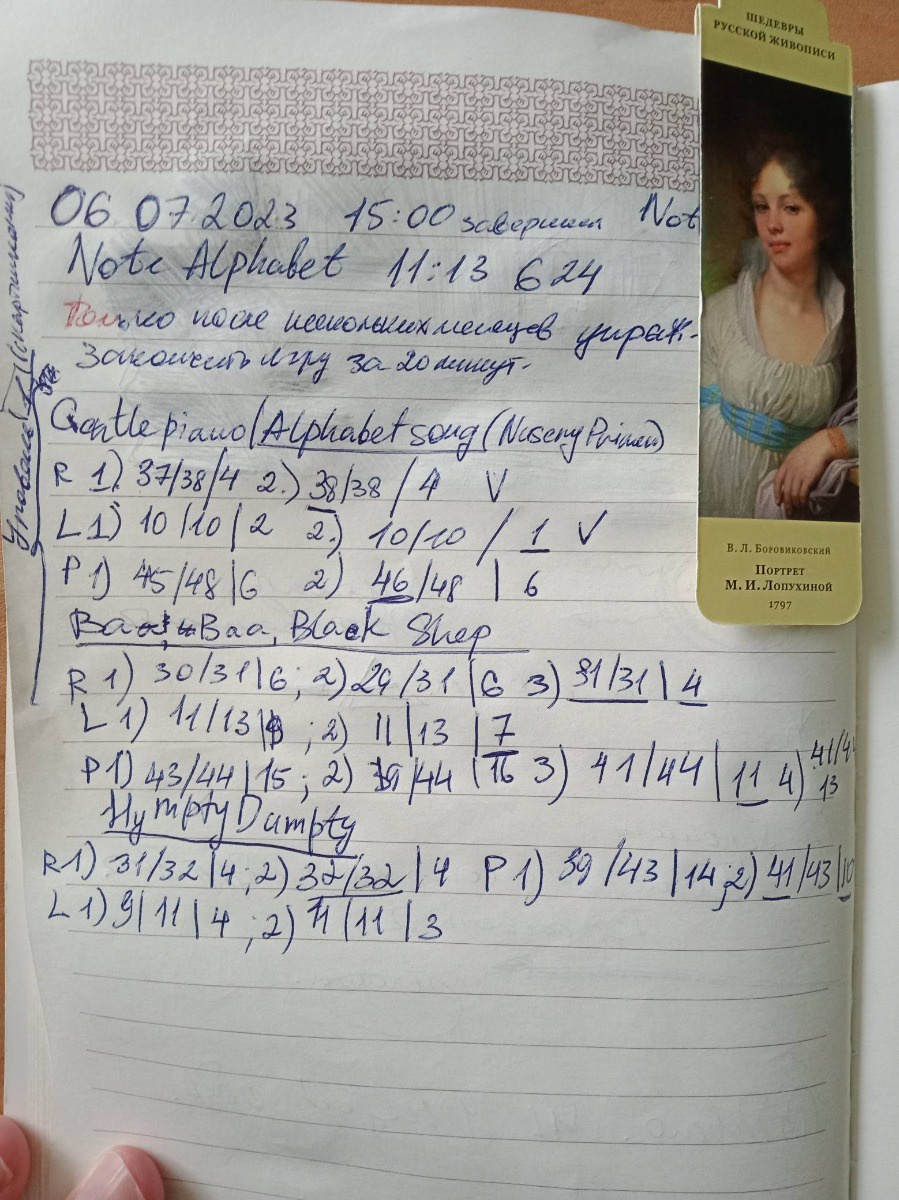 ШЕДЕВРЫ
РУССКОЙ ЖИВОПИСИ
06 07 2023 15:00 завершили Not
Note Alphabet 11:13 624
Только после нескольких месяцев упраж-
Закончить игру за 20 минут.
Gentle piano/Alphabet song (Nuseny Primer)
R 1). 37/38/4 2.) 38/38 / 4 V
L 1) 10/10/2 2.) 10/10 / 1 V
P 1) 45/48/6 2) 46/48 | 6
Baa, Baa, Black Shep
R 1) 30/31|6; 2) 29/31 |6 3) 31/31 | 4
L 1) 11/13| ; 2) 11|13 |7
P 1) 43/44|15; 2) 39/44 |16 3) 41/44 | 11 4) 41/44
13
Hympty Dumpty
R 1) 31/32|4; 2) 32/32|4 P 1) 39/43|14; 2) 41/43|10
L 1) 9|11|4; 2) 11|11|3
В. Л. Боровиковский
Портрет
М. И. Лопухиной
1797